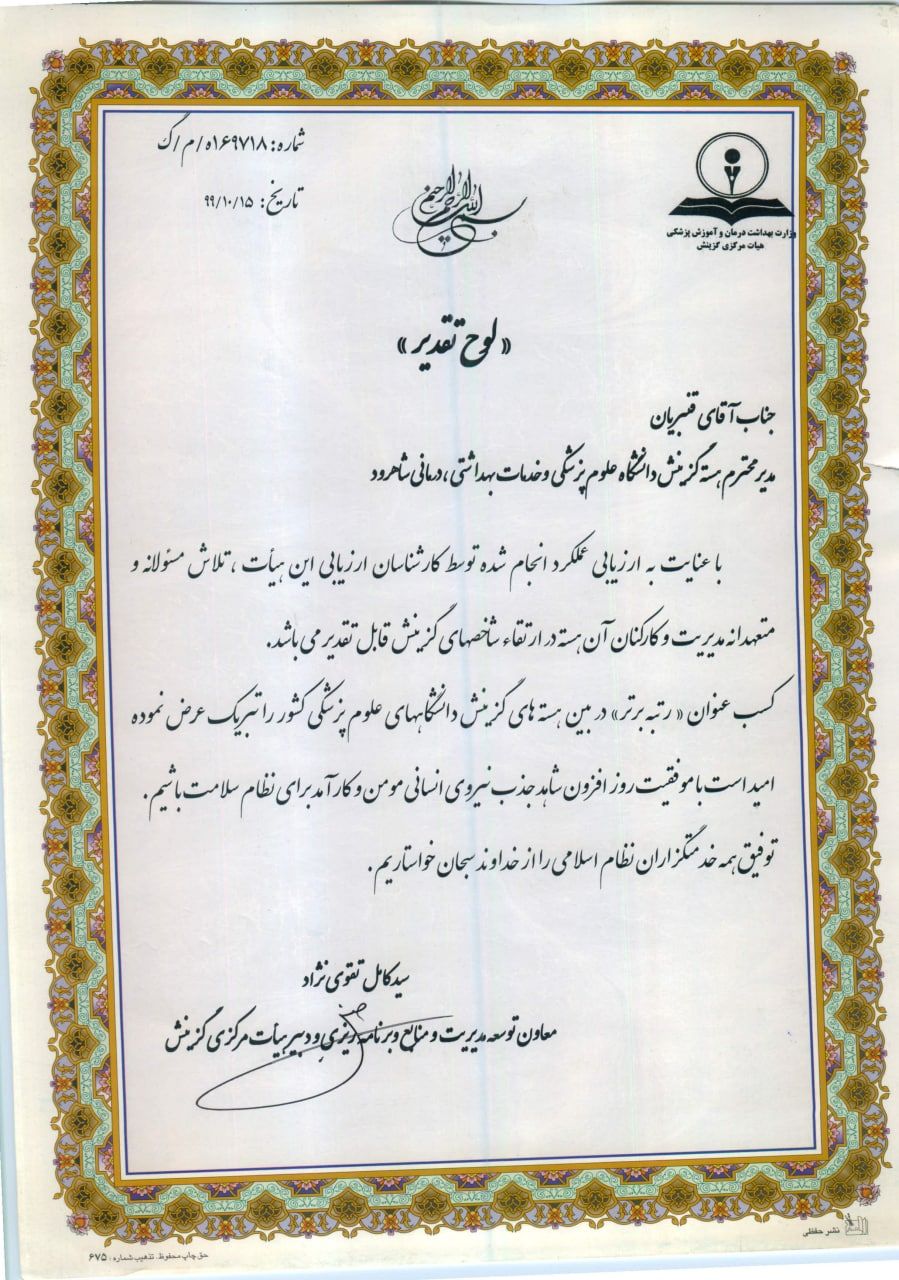 شماره: ۱۶۹۷۱۸ه/م/گ
تاریخ: ۹۹/۱۰/۱۵
بسم الله الرحمن الرحیم
وزارت بهداشت درمان و آموزش پزشکی
هیات مرکزی گزینش
«لوح تقدیر»
جناب آقای قنبریان
مدیر محترم هسته گزینش دانشگاه علوم پزشکی و خدمات بهداشتی ، درمانی شاهرود
با عنایت به ارزیابی عملکرد انجام شده توسط کارشناسان ارزیابی این هیأت ، تلاش مسئولانه و
متعهدانه مدیریت و کارکنان آن هسته در ارتقاء شاخصهای گزینش قابل تقدیر می باشد.
کسب عنوان « رتبه برتر» در بین هسته های گزینش دانشگاههای علوم پزشکی کشور را تبریک عرض نموده
امید است با موفقیت روز افزون شاهد جذب نیروی انسانی مومن و کارآمد برای نظام سلامت باشیم .
توفیق همه خدمتگزاران نظام اسلامی را از خداوند سبحان خواستاریم .
سید کامل تقوی نژاد
معاون توسعه مدیریت و منابع و برنامه ریزی و دبیر هیأت مرکزی گزینش
نشر حفظی
حق چاپ محفوظ. تذهیب شماره : ۶۷۵